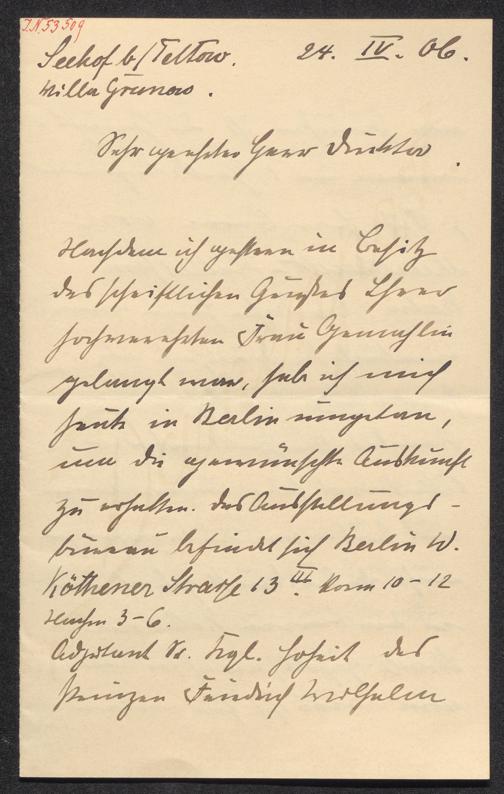 J.N. 53509
Seehof b/Teltow. 24. IV. 06.
Villa Grunow.
Sehr geehrter Herr Direktor.
Nachdem ich gestern in Besitz
des schriftlichen Grußes Ihrer
hochverehrten Frau Gemahlin
gelangt war, hab ich mich
heute in Berlin umgetan,
um die gewünschte Auskunft
zu erhalten. Das Ausstellungs-
bureau befindet sich Berlin W.
Köthener Strasse 13 III. Vorm 10-12
Nachm 3-6.
Adjutant Sr. Kgl. Hoheit des
Prinzen Friedrich Wilhelm